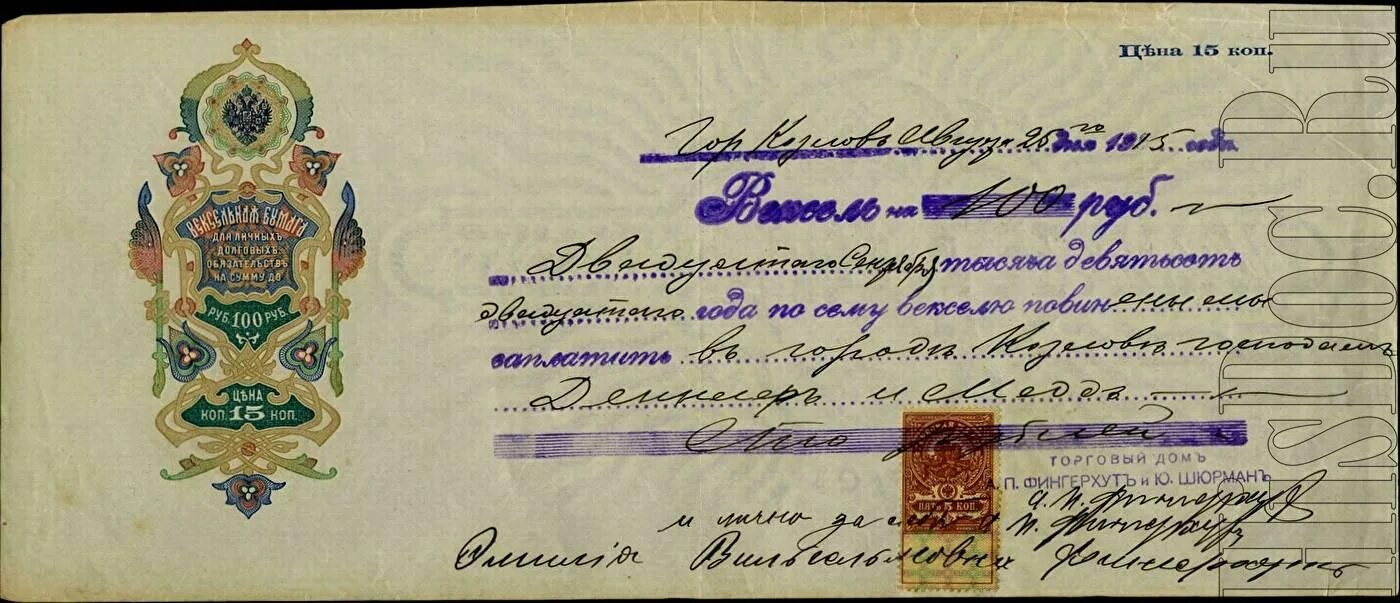 Цѣна 15 коп.
ВЕКСЕЛЬНАЯ БУМАГА
ДЛЯ ЛИЧНЫХЪ
ДОЛГОВЫХЪ
ОБЯЗАТЕЛЬСТВЪ
НА СУММУ ДО
РУБ. 100 РУБ.
ЦѢНА
КОП. 15 КОП.
Гор Козловъ Августа 25 го дня 1915 года
Вексель на 100 руб.
Двадцатаго Сентября тысяча девятьсотъ
двадцатаго года по сему векселю повинены мы
заплатить въ городѣ Козловѣ господамъ
и
Сто рублей
ТОРГОВЫЙ ДОМЪ
А. П. ФИНГЕРХУТЪ и Ю. ШЮРМАНЪ
ПЯТЬ 5 КОП.
А. П. Фингерхутъ
и лично за себя А П. Фингерхутъ
Эмилія Вильгельмовна Фингерхутъ
HISDOC.RU